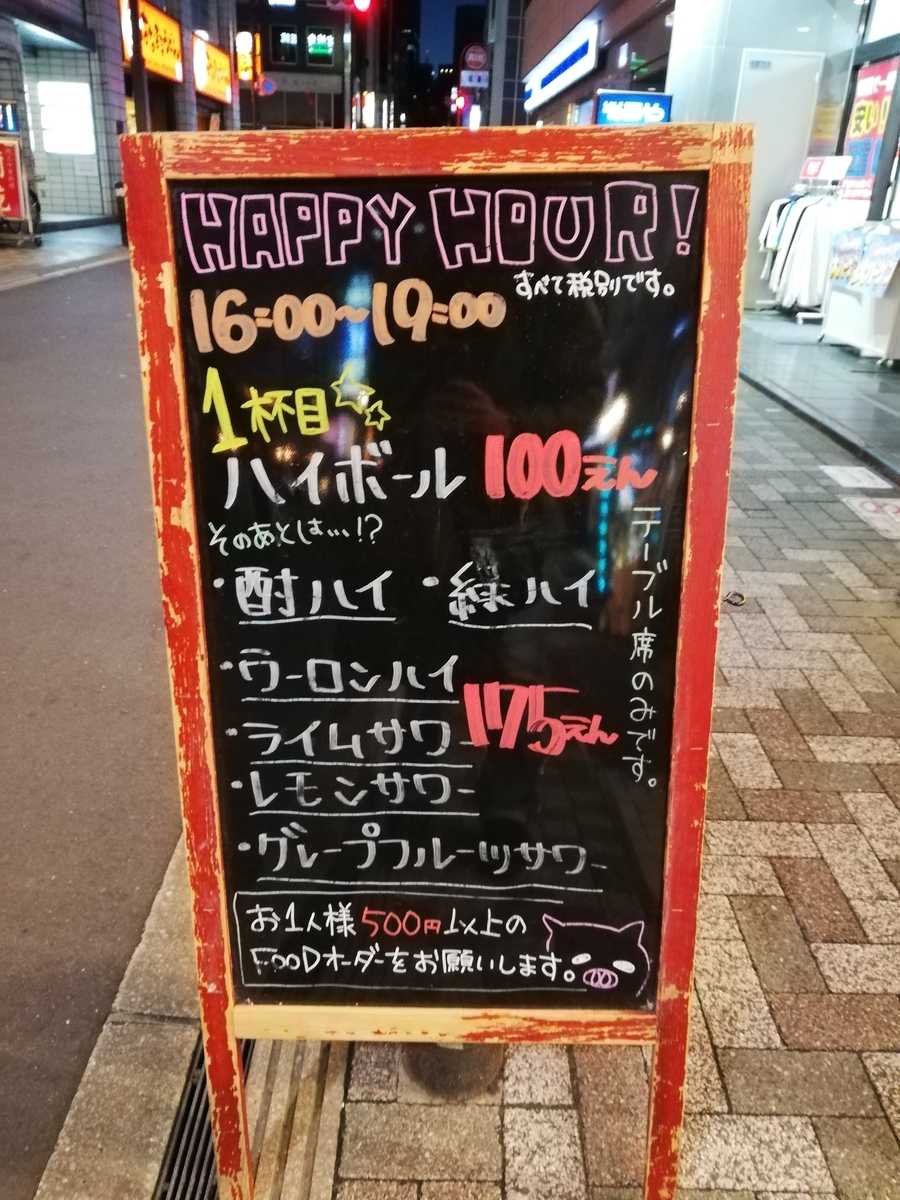 HAPPY HOUR!
すべて税別です。
16:00~19:00
1杯目
ハイボール 100えん
そのあとは…!?
・酎ハイ ・緑ハイ
・ウーロンハイ
・ライムサワー
175えん
・レモンサワー
・グレープフルーツサワー
テーブル席のみです。
お1人様500円以上の
FOODオーダーをお願いします。